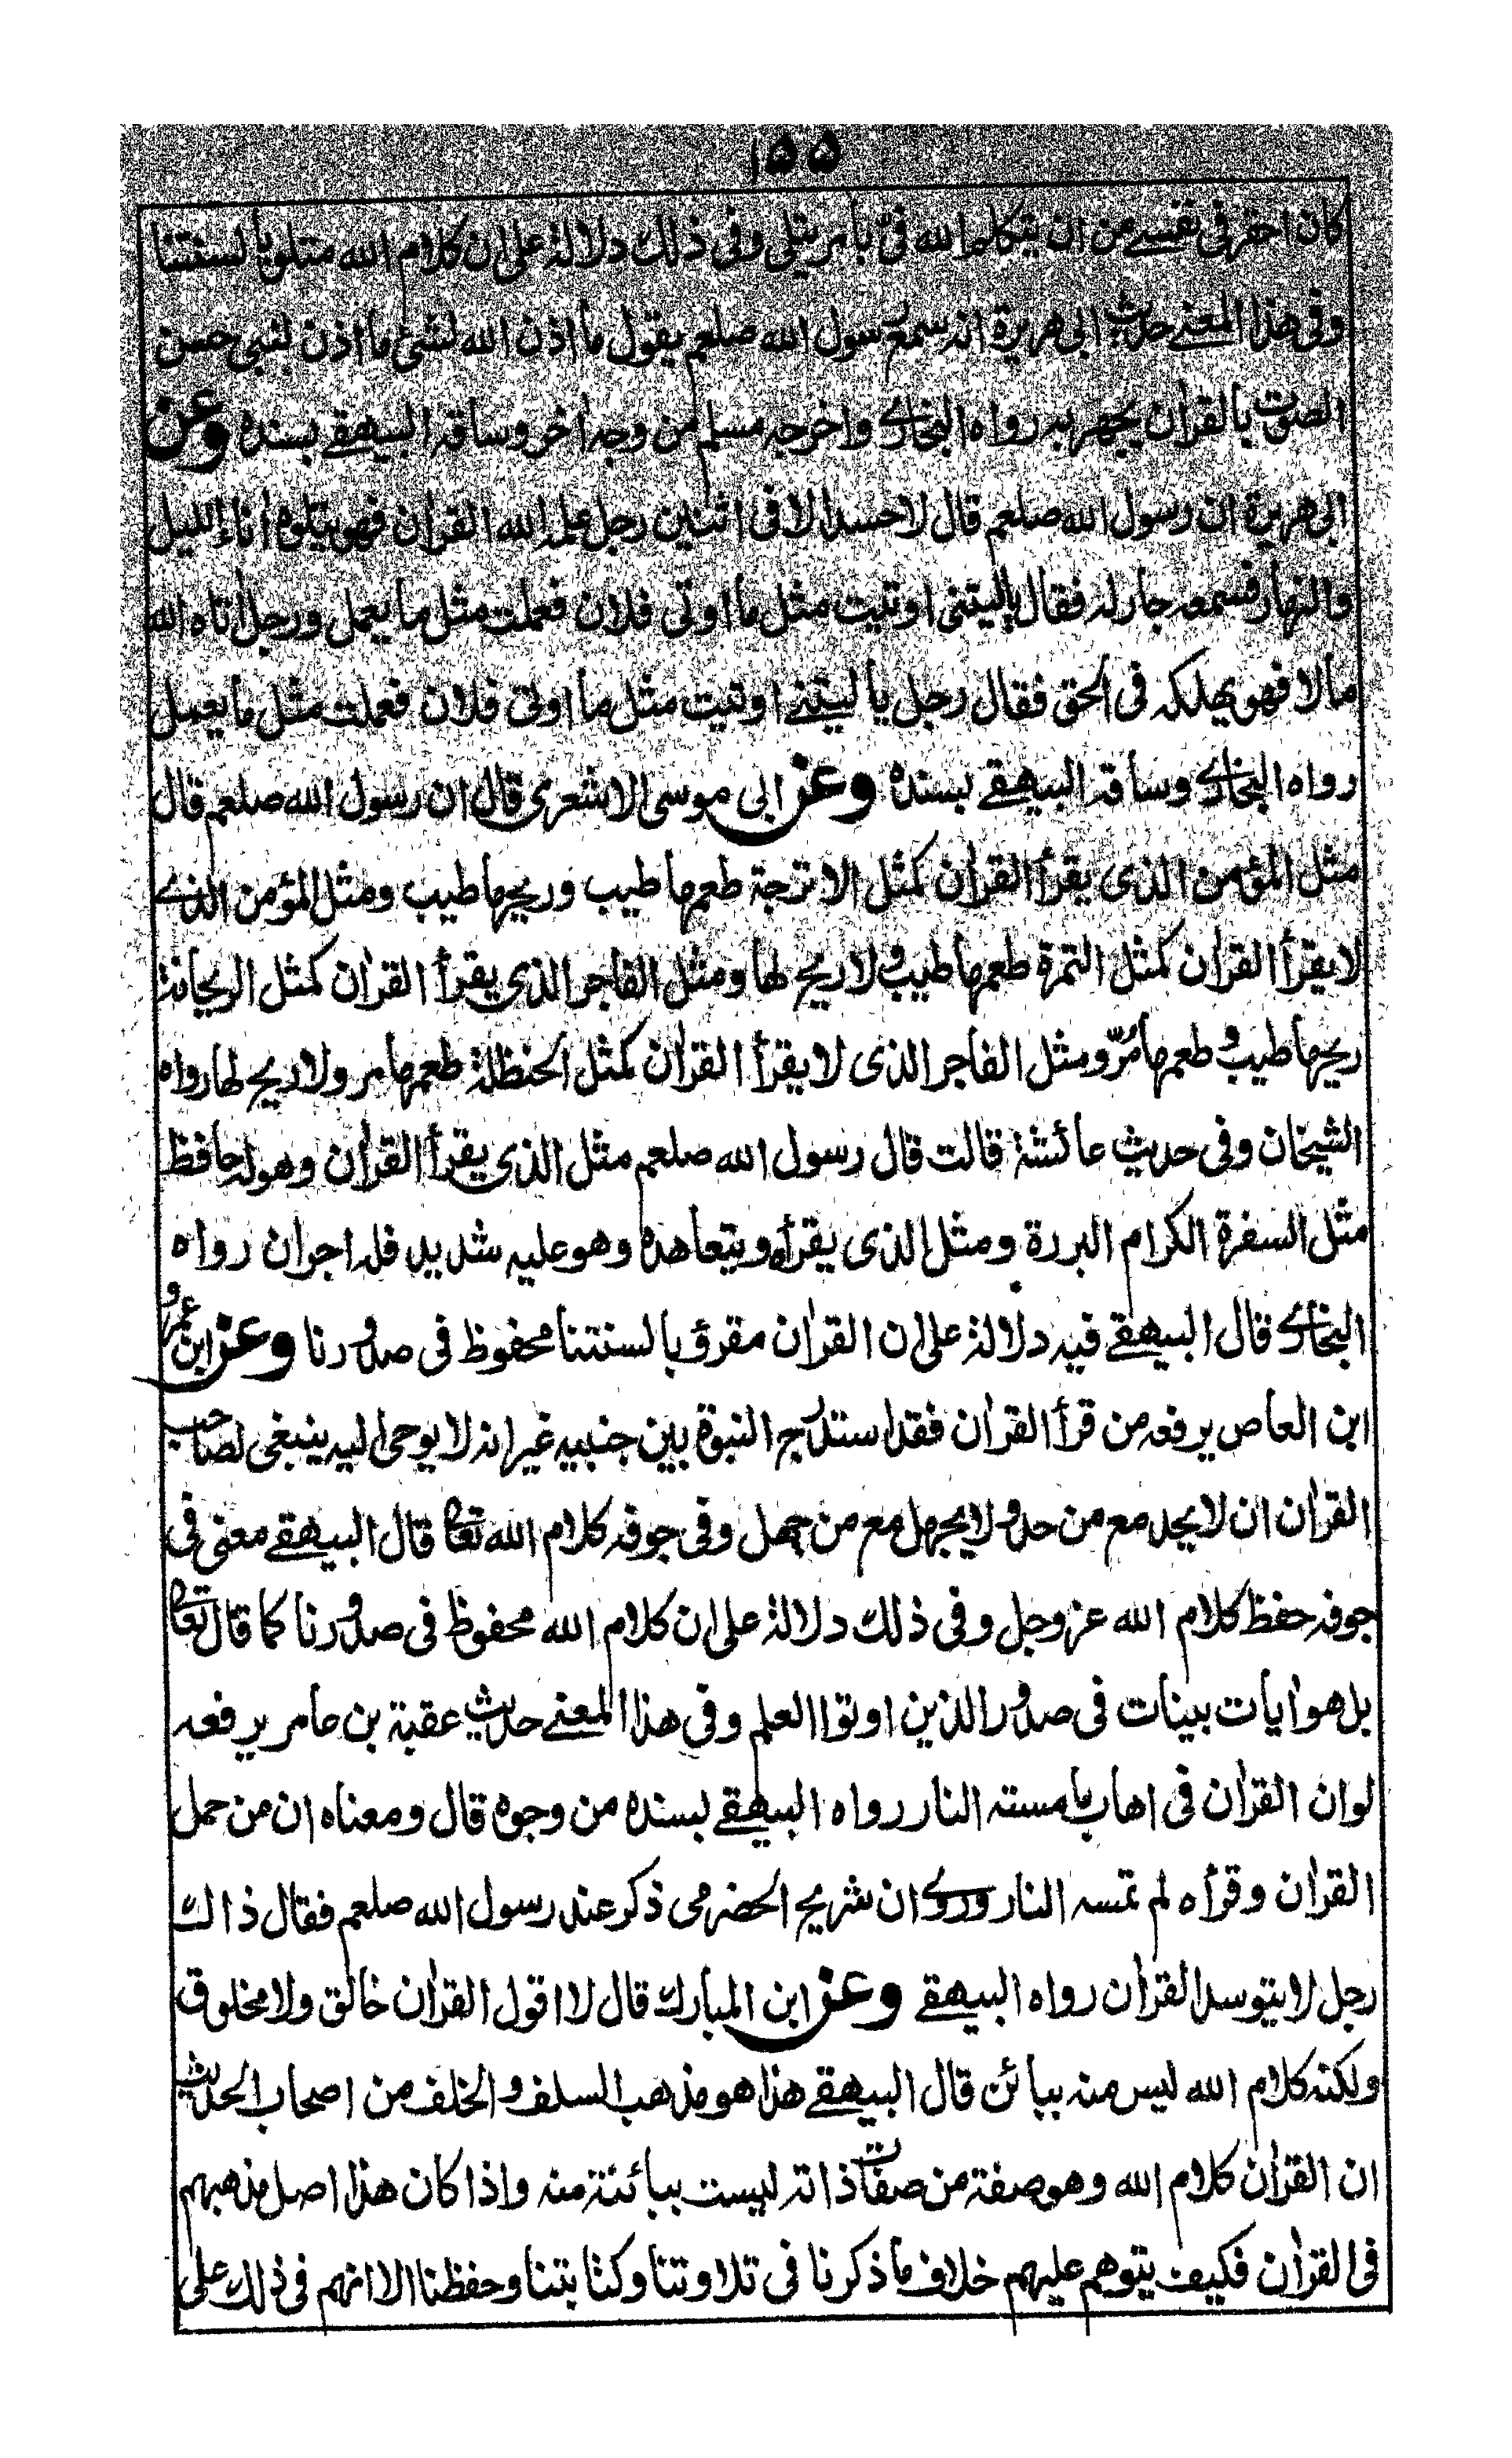 ۱۵۵
كان احقر فى نفسے من ان يتكلم الله فىّ بامر يتلى وفى ذلك دلالة على ان كلام الله متلو بألسنتنا
وفى هذا المعنے حديث ابى هريرة انه سمع رسول الله صلعم يقول ما اذن الله لشئ ما اذن لنبى حسن
الصوت بالقرأن يجهر به رواه البخارے واخرجه مسلم من وجه أخر وساقه البيهقے بسنده وعن
ابى هريرة ان رسول الله صلعم قال لاحسد الا فى اثنين رجل علمه الله القرأن فهو يتلوه أناء الليل
والنهار فسمعه جار له فقال ياليتنى اوتيت مثل ما اوتى فلان فعملت مثل ما يعمل ورجل أتاه الله
مالا فهو يهلكه فى الحق فقال رجل يا ليتنے اوتيت مثل ما اوتى فلان فعملت مثل ما يعمل
رواه البخارے وساقه البيهقے بسنده وعن ابى موسى الاشعرى قال ان رسول الله صلعم قال
مثل المؤمن الذى يقرأ القرأن كمثل الاترجة طعمها طيب وريحها طيب ومثل المؤمن الذے
لا يقرأ القرأن كمثل التمرة طعمها طيب ولا ريح لها ومثل الفاجر الذى يقرأ القرأن كمثل الريحانة
ريحها طيب وطعمها مُرّ ومثل الفاجر الذى لا يقرأ القرأن كمثل الحنظلة طعمها مر ولا ريح لها رواه
الشيخان وفى حديث عائشة قالت قال رسول الله صلعم مثل الذى يقرأ القرأن وهو له حافظ
مثل السفرة الكرام البررة ومثل الذى يقرأه ويتعاهده وهو عليه شديد فله اجران رواه
البخارے قال البيهقے فيه دلالة على ان القرأن مقرؤ بالسنتنا محفوظ فى صدورنا وعن ابن عمرو
ابن العاص يرفعه من قرأ القرأن فقد استدرج النبوة بين جنبيه غير انه لا يوحى اليه ينبغى لصاحب
القرأن ان لا يجد مع من حد ولا يجهل مع من جهل وفى جوفه كلام الله تعالى قال البيهقے معنى فى
جوفه حفظ كلام الله عز وجل وفى ذلك دلالة على ان كلام الله محفوظ فى صدورنا كما قال تعالى
بل هو أيات بينات فى صدور الذين اوتوا العلم وفى هذا المعنے حديث عقبة بن عامر يرفعه
لو ان القرأن فى اهاب ما مسته النار رواه البيهقے بسنده من وجوه قال ومعناه ان من حمل
القرأن وقرأه لم تمسه النار وروے ان شريح الحضرمى ذكر عند رسول الله صلعم فقال ذاك
رجل لا يتوسد القرأن رواه البيهقے وعن ابن المبارك قال لا اقول القرأن خالق ولا مخلوق
ولكنه كلام الله ليس منه ببائن قال البيهقے هذا هو مذهب السلف والخلف من اصحاب الحديث
ان القرأن كلام الله وهو صفة من صفات ذاته ليست ببائنة منه واذا كان هذا اصل مذهبهم
فى القرأن فكيف يتوهم عليهم خلاف ما ذكرنا فى تلاوتنا وكتابتنا وحفظنا الا انهم فى ذلك على